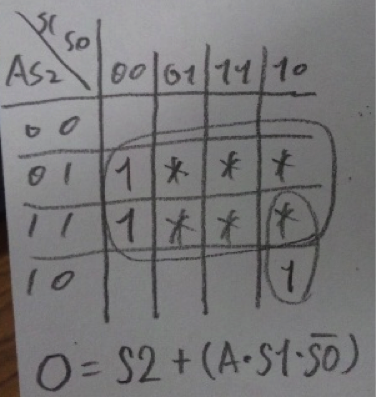 S1 S0
AS2 00 01 11 10
00
01 1 * * *
11 1 * * *
10 1
O = S2 + (A·S1·S̅0̅)